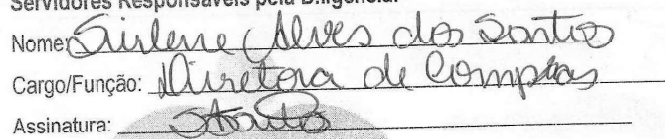 Servidores Responsáveis pela Diligência:
Nome: Sirlene Alves dos Santos
Cargo/Função: Diretora de Compras
Assinatura: Santos